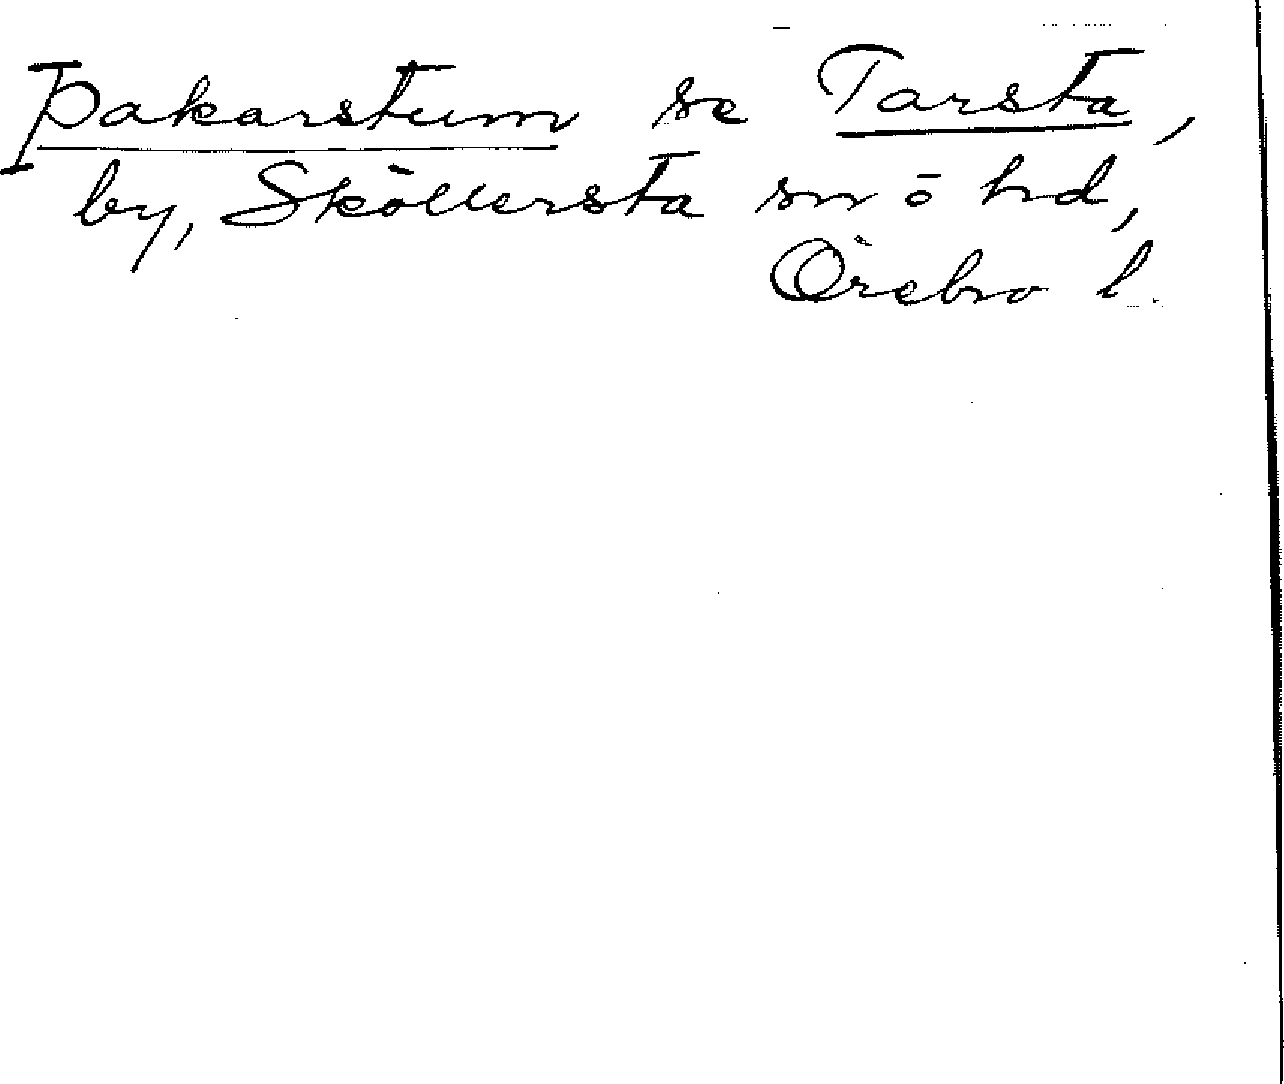 Þakarstum se Tarsta,
by, Sköllersta sn o hd,
Örebro l.